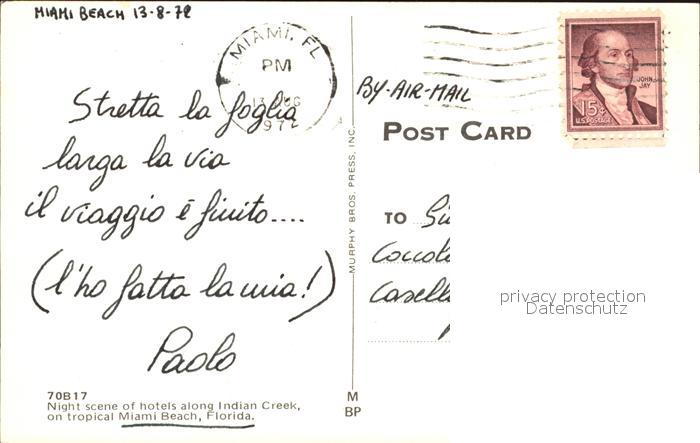 MIAMI BEACH 13-8-72
MIAMI, FL
PM
13 AUG
197
BY-AIR-MAIL
JOHN
JAY
15¢
U.S. POSTAGE
POST CARD
Stretta la foglia
larga la via
il viaggio è finito....
(l'ho fatta la mia!)
Paolo
MURPHY BROS. PRESS, INC.
TO
Coccol
Casell
privacy protection
Datenschutz
70B17
Night scene of hotels along Indian Creek,
on tropical Miami Beach, Florida.
M
BP